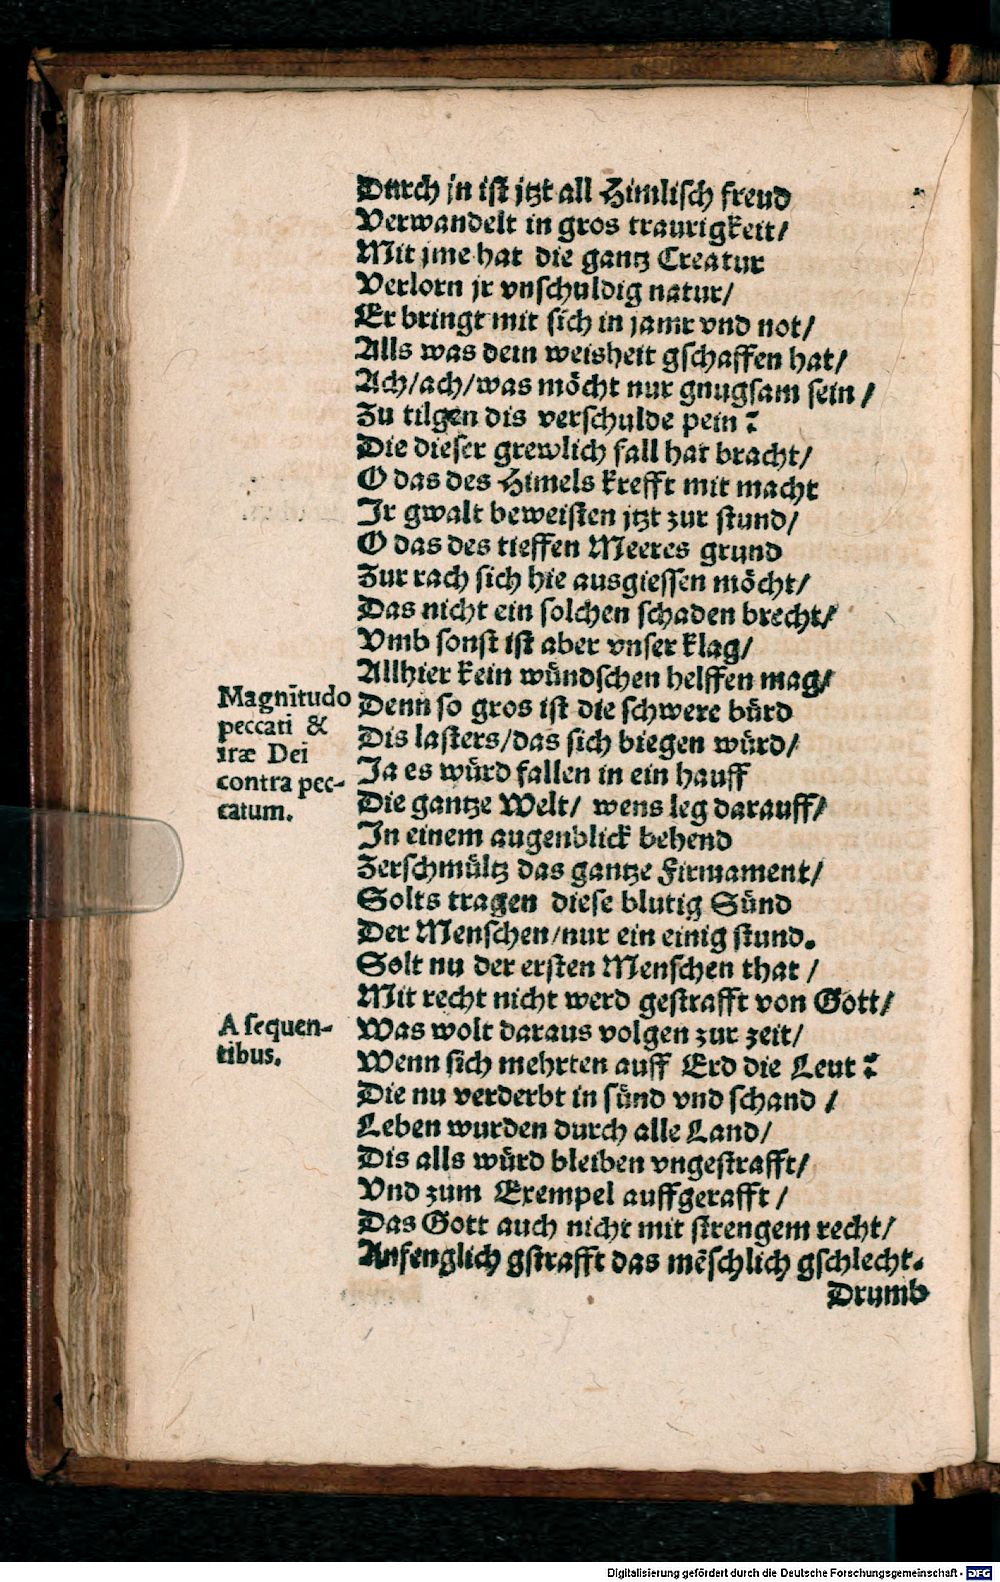 Durch jn ist jtzt all Himlisch freud
Verwandelt in gros traurigkeit/
Mit jme hat die gantz Creatur
Verlorn jr vnschuldig natur/
Er bringt mit sich in jamr vnd not/
Alls was dein weisheit gschaffen hat/
Ach/ach/was möcht nur gnugsam sein/
Zu tilgen dis verschulde pein?
Die dieser grewlich fall hat bracht/
O das des Himels krefft mit macht
Jr gwalt beweisten jtzt zur stund/
O das des tieffen Meeres grund
Zur rach sich hie ausgiessen möcht/
Das nicht ein solchen schaden brecht/
Vmb sonst ist aber vnser klag/
Allhier kein wündschen helffen mag/
Denn so gros ist die schwere bürd
Dis lasters/das sich biegen würd/
Ja es würd fallen in ein hauff
Die gantze Welt/ wens leg darauff/
In einem augenblick behend
Zerschmültz das gantze Firmament/
Solts tragen diese blutig Sünd
Der Menschen/nur ein einig stund.
Solt nu der ersten Menschen that/
Mit recht nicht werd gestrafft von Gott/
Was wolt daraus volgen zur zeit/
Wenn sich mehrten auff Erd die Leut?
Die nu verderbt in sünd vnd schand/
Leben wurden durch alle Land/
Dis alls würd bleiben vngestrafft/
Vnd zum Exempel auffgerafft/
Das Gott auch nicht mit strengem recht/
Anfenglich gstrafft das mēschlich gschlecht.
Drumb
Magnitudo
peccati &
iræ Dei
contra pec-
catum.
A sequen-
tibus.
Digitalisierung gefördert durch die Deutsche Forschungsgemeinschaft - DFG